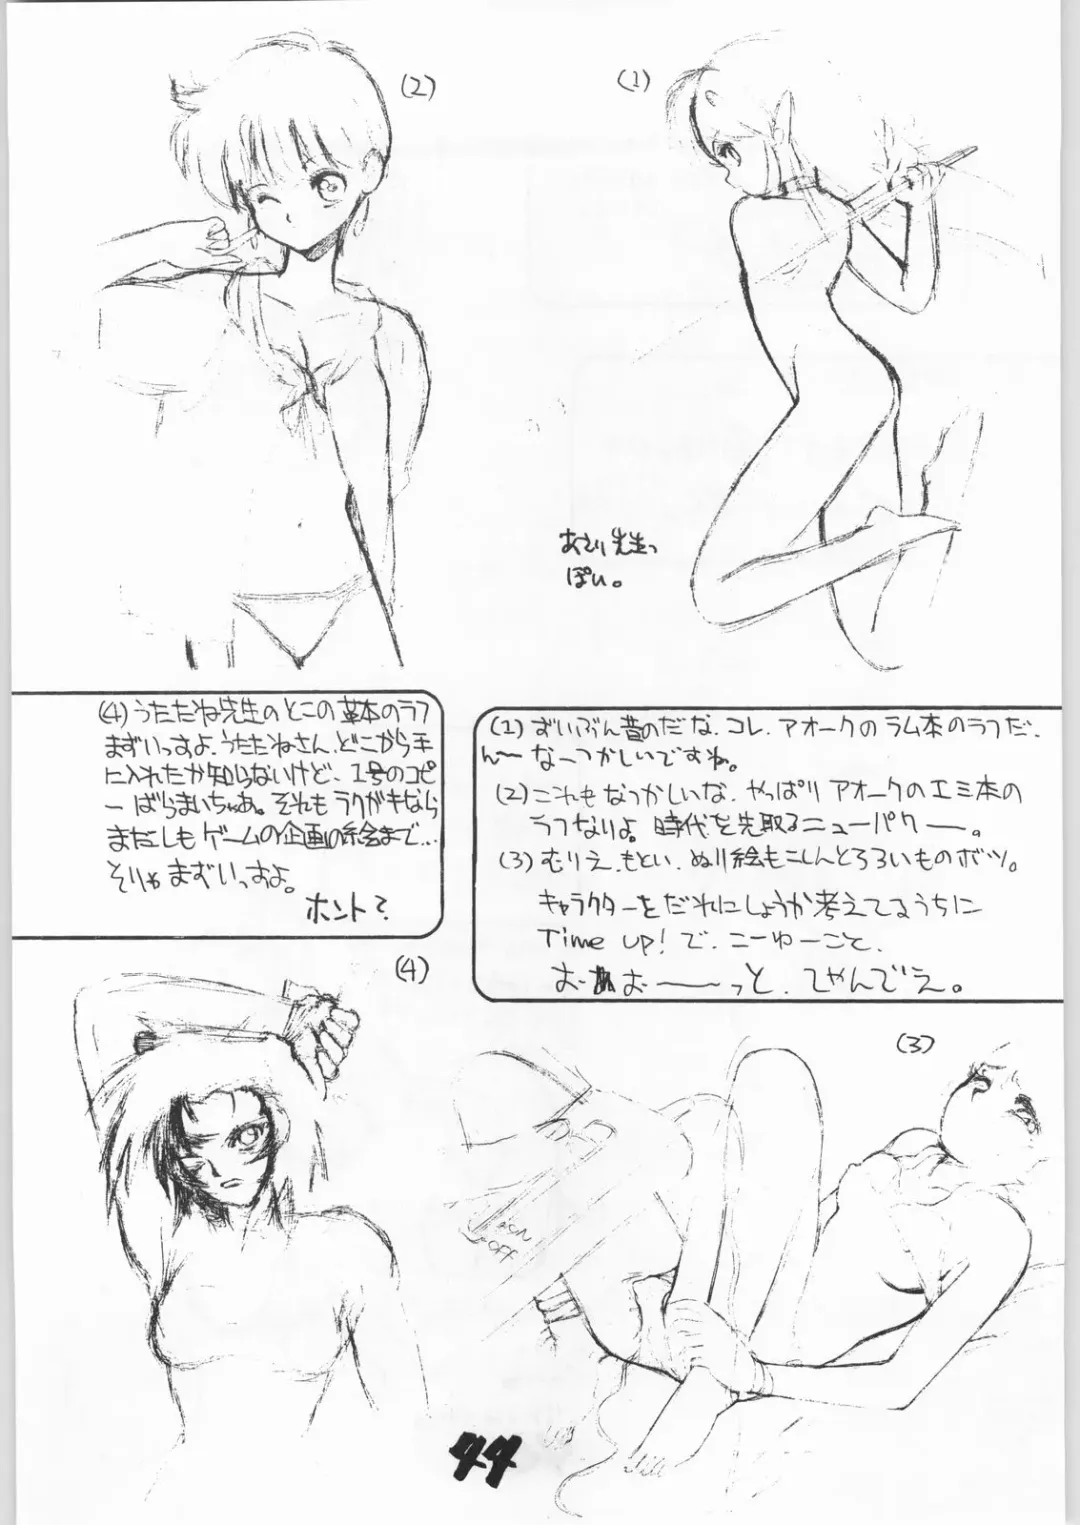 (2)
(1)
あさり先生っ
ぽい。
(1) ずいぶん昔のだな、コレ、アオークのラム本のラフだ、
ん〜なーつかしいですね。
(2) これもなつかしいな、やっぱりアオークのエミ本の
ラフなりよ。時代を先取るニューパワー。
(3) むりえ、もとい、ぬり絵もこしんとろろいものボツ。
キャラクターをだれにしょうか考えてるうちに
Time up! で、こーゆーこと、
おーーっと、てやんでえ。
(4) うたたね先生のとこの革本のラフ
まずいっすよ、うたたねさん、どこから手
に入れたか知らないけど、1号のコピ
ーばらまいちゃあ。それもラクガキなら
まだしもゲームの企画の絵まで…
そりゃまずいっすよ。
ホント?
(4)
(3)
ON
OFF
44